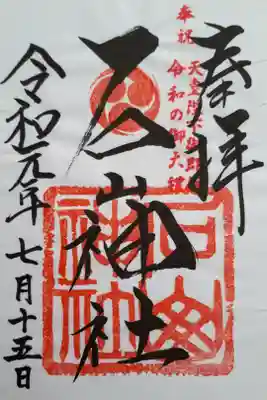 奉拝
奉祝 天皇陛下
令和の御大禮
神社
令和元年七月十五日
神社